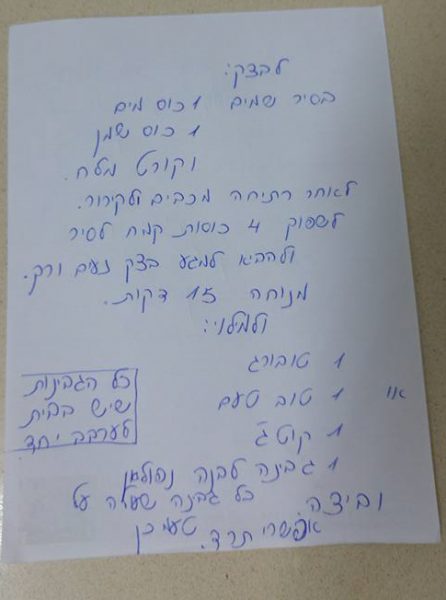 לבצק:
בסיר שמים 1 כוס מים
1 כוס שמן
וקורט מלח.
לאחר רתיחה מכבים ולקירור.
לשפוך 4 כוסות קמח לסיר
ולהביא למגע בצק נעים ורך.
מנוחה 15 דקות.
ולמילוי:
1 טובורג
או 1 טוב טעם
1 קוטג'
1 גבינה לבנה נפוליאון
וביצה.
כל הגבינות
שיש בבית
לערבב יחד
כל גבינה שעולה על
טעמכן
אפשרי תרד.